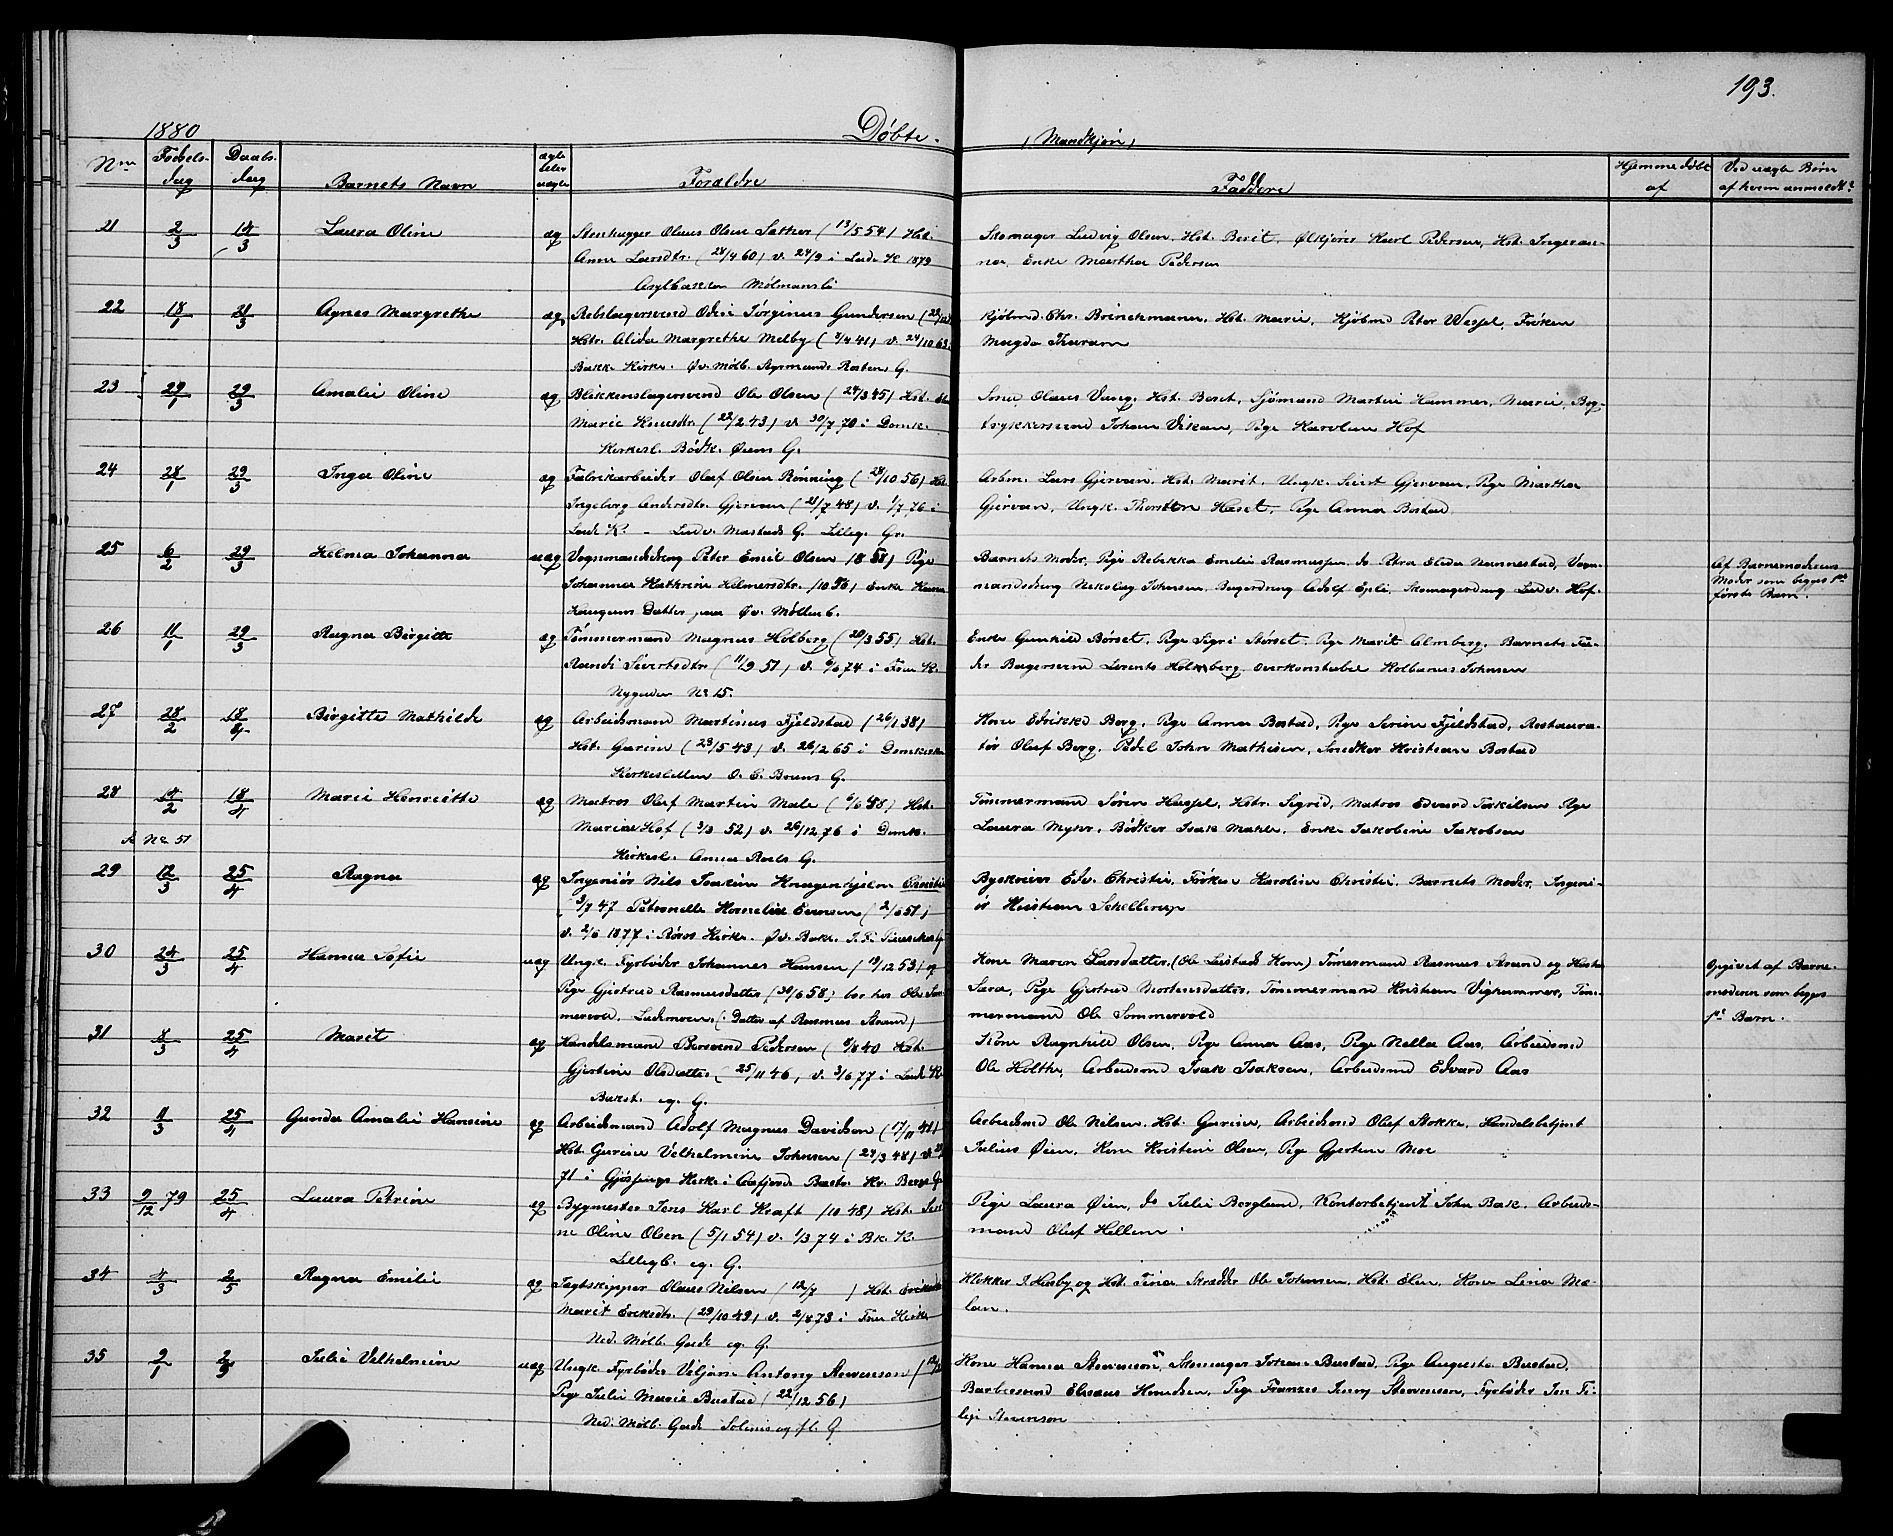 193.
1880
Döbte. (Mandkjön)
Nm Fødsels-dag Daabs-dag Barnets Navn ægte eller uægte Forældre Faddere Hjemmedöbt af Ved uægte Börn af hvem anmeldt?
21 2/3 14/3 Laura Oline æg Stenhugger Olaus Olsen Sæther (13/5 54) Hst.
Anne Larsdtr. (28/4 60) v. 24/9 i Lade K 1879
Asylbakken Mølmansli
Skomager Ludvig Olsen, Hst. Berit, Ølkjører Karl Pedersen, Hst. Ingeran-
na, Enke Martha Pedersen
22 18/1 21/3 Agnes Margrethe æg Rebslagersvend Odin Jørginus Gundersen
Hstr. Alida Margrethe Melby (2/4 41) v. 24/10 63
Bakke Kirke. Øv. Mølb. Agrmands Rostens G.
Kjöbmd. Chr. Brinchmann, Hst. Marie, Kjöbmd Peter Wessel, Fröken
Magda Thoram
23 29/1 29/3 Amalie Oline æg Blikkenslagersvend Ole Olsen (24/3 45) Hst.
Marie Knudsdtr. (22/2 43) v. 30/7 70 i Domk.
Kirkesl. Bødk. Øiens G.
Snr. Olaus Vang, Hst. Beret, Sjømand Martin Hammer, Marie, Bog-
trykkersvend Johan Vikan, Pige Karolin Hof
24 28/1 29/3 Inga Oline æg Fabrikarbeider Oluf Olsen Rönning (28/10 56) Hst.
Ingeborg Andersdtr. Gjervan (21/7 48) v. 1/7 76 i
Lade K. - Ludv. Mastads G. Lilleg. Gr.
Arbm. Lars Gjervan, Hst. Marit, Ungk. Sivert Gjervan, Pige Martha
Gjervan, Ungk. Thorsten Haset, Pige Anna Bostad
25 6/2 29/3 Helma Johanna uæg Vognmandsdreng Peter Emil Olsen 18 58) Pige
Johanna Kathrine Helmersdtr. (10 56) Enke Hanna
Haugens Datter paa Øv. Møllenb.
Barnets Moder, Pige Rebekka Emelie Rasmussen, do Petra Elida Nannestad, Vogn-
mandsdreng Nikolay Johnsen, Bagerdreng Adolf Epli, Skomagerdreng Ludv. Hof.
Af Barnemoderens
Moder som begges
förste Barn.
26 11/1 29/3 Ragna Birgitte æg Tömmermand Magnus Holberg (20/3 55) Hst.
Randi Sivertsdtr. (11/9 51) v. 6/6 74 i Frue K.
Nygaden No 15.
Enke Gunhild Börset, Pige Sigri Störset, Pige Marit Almberg, Barnets Fa-
der Bagersvend Lorents Holmberg, overkonstabel Kolbanus Johnsen
27 28/2 18/4 Birgitte Mathilde æg Arbeidsmand Martinus Fjeldstad (26/1 38)
Hst. Gurine (23/5 43) v. 26/2 65 i Domkirken
Kirkesletten O. C. Bruns G.
Kone Edrikke Berg, Pige Anna Bostad, Pige Serine Fjeldstad, Restaura-
tör Oluf Berg, Pedel John Mathisen, Snedker Kristian Bostad
28 14/2 18/4 Marie Henriette æg Matros Oluf Martin Male (6/6 48) Hst.
Maria Hof (3/3 52) v. 26/12 76 i Domk.
Kirkesl. Anna Roels G.
Tømmermand Søren Hassel, Hstr. Sigrid, Matros Edvard Torkilsen Pige
Laura Myhr, Bödker Isak Mahle, Enke Jakobine Jakobsen
A No 51
29 12/3 25/4 Ragna æg Ingeniör Nils Joakim Knagenhjelm Christie
(3/7 47 Petronelle Kornelia Evensen (2/6 51)
v. 2/6 1877 i Röros Kirke. Öv. Bakl.
Byskriver Edv. Christie, Fröken Karoline Christie, Barnets Moder, Ingeni-
ör Kristian Schellerup
30 24/3 25/4 Hanna Sofie uæg Ungk. Fyrböder Johannes Hansen (19/12 53) og
Pige Gjertrud Rasmusdatter (30/6 58) bor hos Ole Som-
mervold, Lademoen. (Datter af Rasmus Strand)
Kone Maren Larsdatter (Ole Leistads Kone) Tömmermand Rasmus Strand og Hustru
Sara, Pige Gjertrud Mortensdatter, Tömmermand Kristian Vighammer, Töm-
mermand Ole Sommervold
Opgivet af Barne-
moderen som begges
1st Barn.
31 8/3 25/4 Marit æg Handelsmand Bersvend Pedersen (8/8 40 Hst.
Gjertine Olsdatter (25/11 46) v. 3/6 77 i Lade K
Bakst. eg. G.
Kone Ragnhild Olsen, Pige Anna Aas, Pige Nella Aas, Arbeidsmd
Ole Holthe, Arbeidsmd Isak Isaksen, Arbeidsmd Edvard Aas
32 11/3 25/4 Gunda Amalie Hansine æg Arbeidsmand Adolf Magnus Davidsen (17/11 41)
Hst. Gurine Vilhelmine Johnsen (24/3 48) v.
71 i Gjösjings Kirke i Aafjord Bakst. Kr. Bergs G
Arbeidsmd Ole Nilsen, Hst. Gurine, Arbeidsmd Oluf Stokke, Handelsbetjent
Julius Øien, Kone Kristine Olsen, Pige Gjertine Moe
33 9/12 79 25/4 Laura Petrine æg Bygmester Jens Karl Kraft (10 48) Hst.
ne Oline Olsen (5/1 54) v. 1/3 74 i Bk. K.
Lillegb. eg. G.
Pige Laura Øien, do Julie Berglund, Kontorbetjent John Bak, Arbeids-
mand Oluf Hellem
34 4/3 2/5 Ragna Emilie æg Jagtskipper Olaus Nilsen (12/7 ) Hst.
Marit Eriksdtr. (29/10 49) v. 2/8 73 i Frue Kirke
Ned. Mølb. Gade eg. G.
Klokker J. Husby og Hst. Tina Skrædder Ole Johansen, Hst. Elen, Kone Lina Mæ-
lan.
35 9/1 2/5 Julie Vilhelmine uæg Ungk. Fyrböder Veljam Antony Stevenson
Pige Julie Marie Bustad (22/12 56)
Ned. Mølb. Gade Solems og fl. G
Kone Hanna Stevenson, Skomager Johan Bustad, Pige Augusta Bustad,
Barbersvend Elseus Knudsen, Pige Franzes Jenny Stevensen, Fyrböder
Stevenson